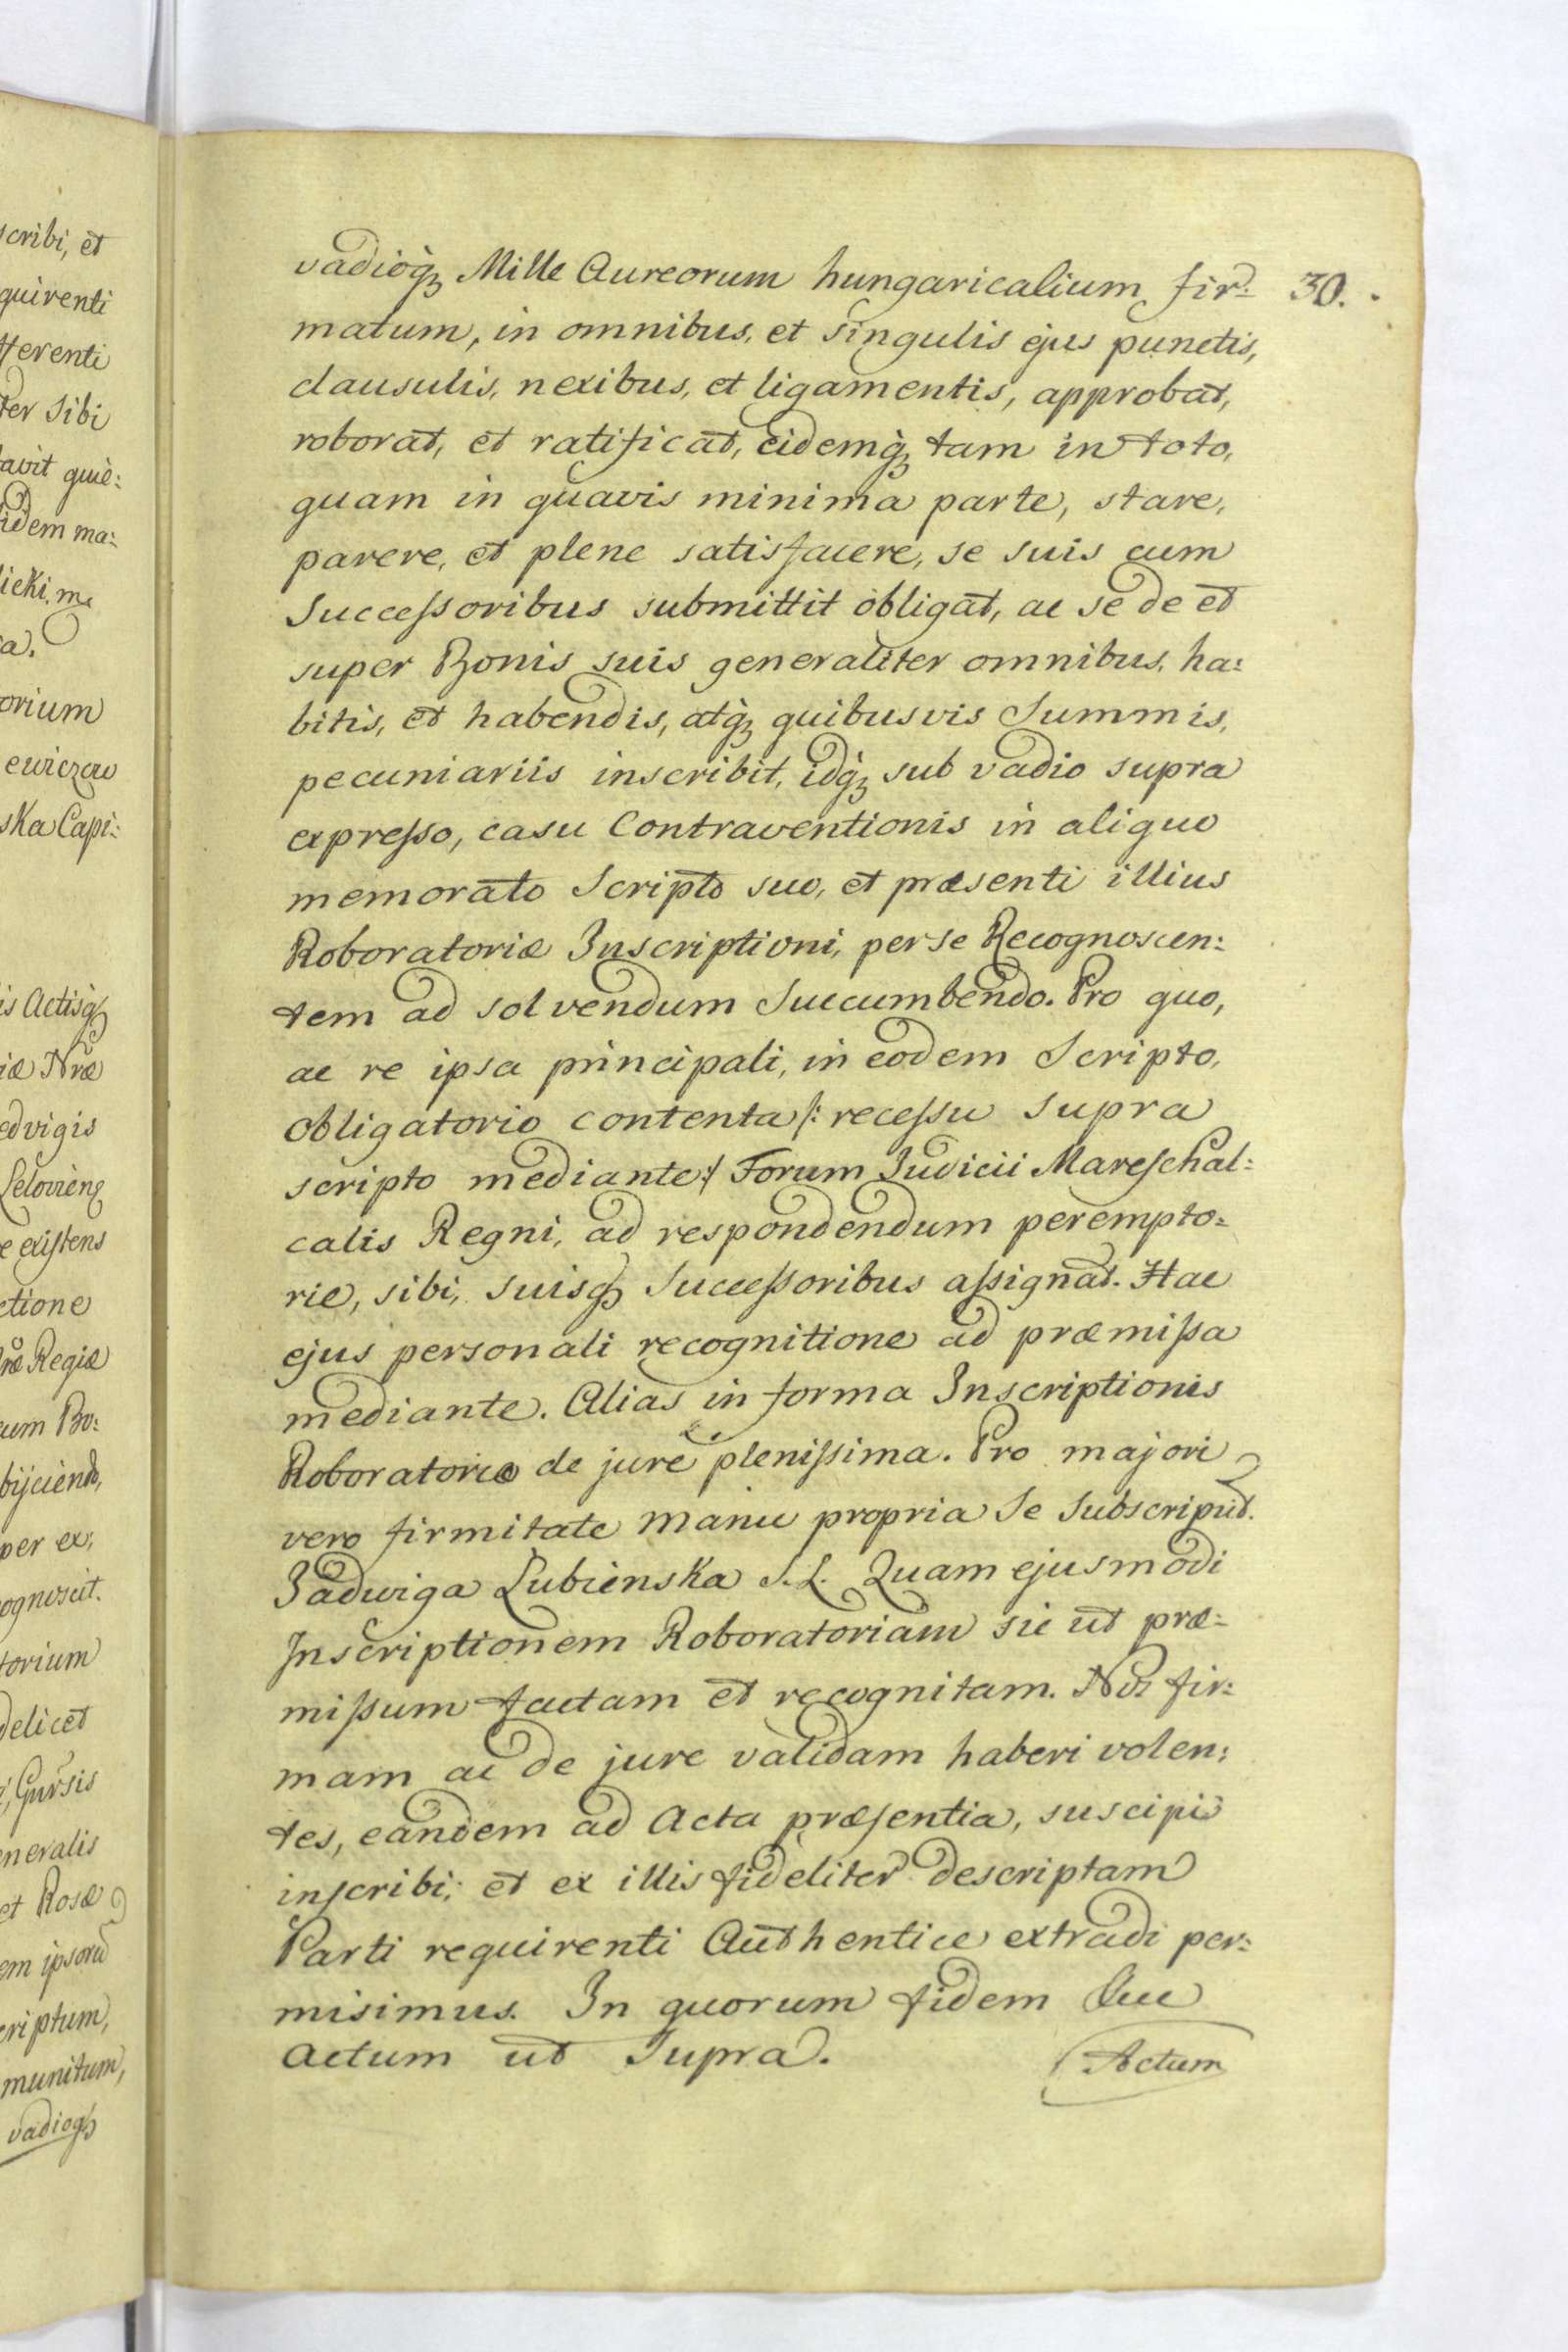 scribi, et
quirenti
fferenti
ter Sibi
tavit quie:
idem ma:
licki, m.
a.
orium
ewiczow
ska Capi:
is Actisq3
iæ Nræ
edvigis
Seloviens
e existens
ctione
Regiæ
cum Bo:
bijciendo,
per ex:
ognoscit.
torium
delicet
Gursis
neralis
et Rosæ
em ipsoru
criptum,
munitum,
vadioq3
30.
vadioq3 Mille Aureorum hungaricalium fir:
matum, in omnibus, et singulis ejus punctis,
clausulis, nexibus, et ligamentis, approbat,
roborat, et ratificat, eidemq3 tam in toto,
quam in quavis minima parte, stare,
parere, et plene satisfacere, se suis cum
Successoribus submittit obligat, ac se de et
super Bonis suis generaliter omnibus, ha:
bitis, et habendis, atq3 quibusvis Summis,
pecuniariis inscribit, idq3 sub vadio supra
expresso, casu Contraventionis in aliquo
memorato Scripto suo, et præsenti illius
Roboratoriæ Inscriptioni, per se Recognoscen:
tem ad solvendum Succumbendo. Pro quo,
ac re ipsa principali, in eodem Scripto,
Obligatorio contenta /: recessu supra
scripto mediante :/ Forum Judicii Mareschal:
calis Regni, ad respondendum perempto:
rie, sibi, suisq3 Successoribus assignat. Hac
ejus personali recognitione ad præmissa
mediante. Alias in forma Inscriptionis
Roboratoriæ de jure plenissima. Pro majori
vero firmitate manu propria Se Subscripsit.
Jadwiga Lubienska S.L. Quam ejusmodi
Inscriptionem Roboratoriam sic ut præ:
missum factam et recognitam. Nos fir:
mam ac de jure validam haberi volen:
tes, eandem ad Acta præsentia, suscipi
inscribi, et ex illis fideliter descriptam
Parti requirenti Authentice extradi per:
misimus. In quorum fidem &c
Actum ut Supra.
Actum